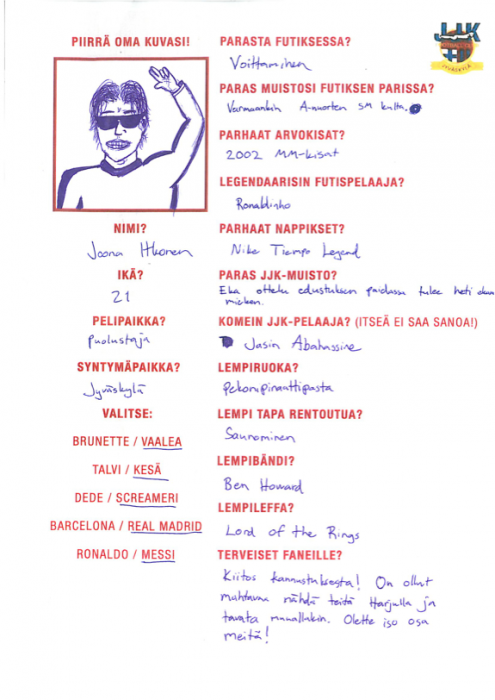 PIIRRÄ OMA KUVASI!
NIMI?
Joona Itkonen
IKÄ?
21
PELIPAIKKA?
Puolustaja
SYNTYMÄPAIKKA?
Jyväskylä
VALITSE:
BRUNETTE / VAALEA
TALVI / KESÄ
DEDE / SCREAMERI
BARCELONA / REAL MADRID
RONALDO / MESSI
JJK
JYVÄSKYLÄ
PARASTA FUTIKSESSA?
Voittaminen
PARAS MUISTOSI FUTIKSEN PARISSA?
Varmaankin A-nuorten SM kulta.
PARHAAT ARVOKISAT?
2002 MM-kisat
LEGENDAARISIN FUTISPELAAJA?
Ronaldinho
PARHAAT NAPPIKSET?
Nike Tiempo Legend
PARAS JJK-MUISTO?
Eka ottelu edustuksen paidassa tulee heti ekana
mieleen.
KOMEIN JJK-PELAAJA? (ITSEÄ EI SAA SANOA!)
Jasin Abahassine
LEMPIRUOKA?
Pekonipinaattipasta
LEMPI TAPA RENTOUTUA?
Saunominen
LEMPIBÄNDI?
Ben Howard
LEMPILEFFA?
Lord of the Rings
TERVEISET FANEILLE?
Kiitos kannustuksesta! On ollut
mahtavaa nähdä teitä Harjulla ja
tavata muuallakin. Olette iso osa
meitä!